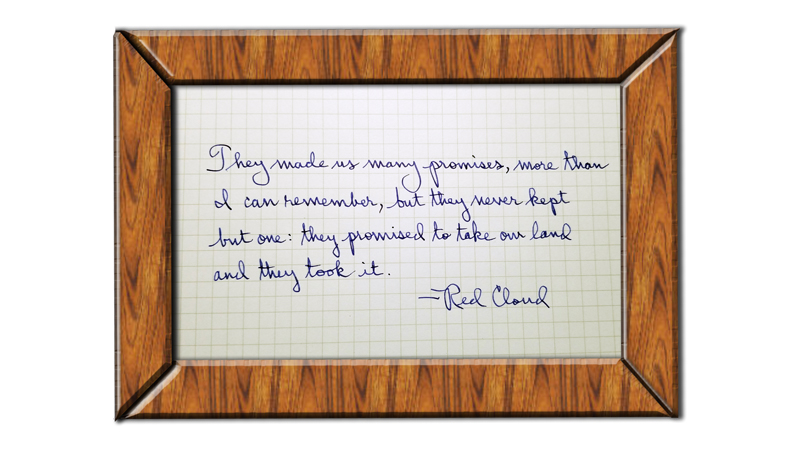 They made us many promises, more than
I can remember, but they never kept
but one: they promised to take our land
and they took it.
—Red Cloud